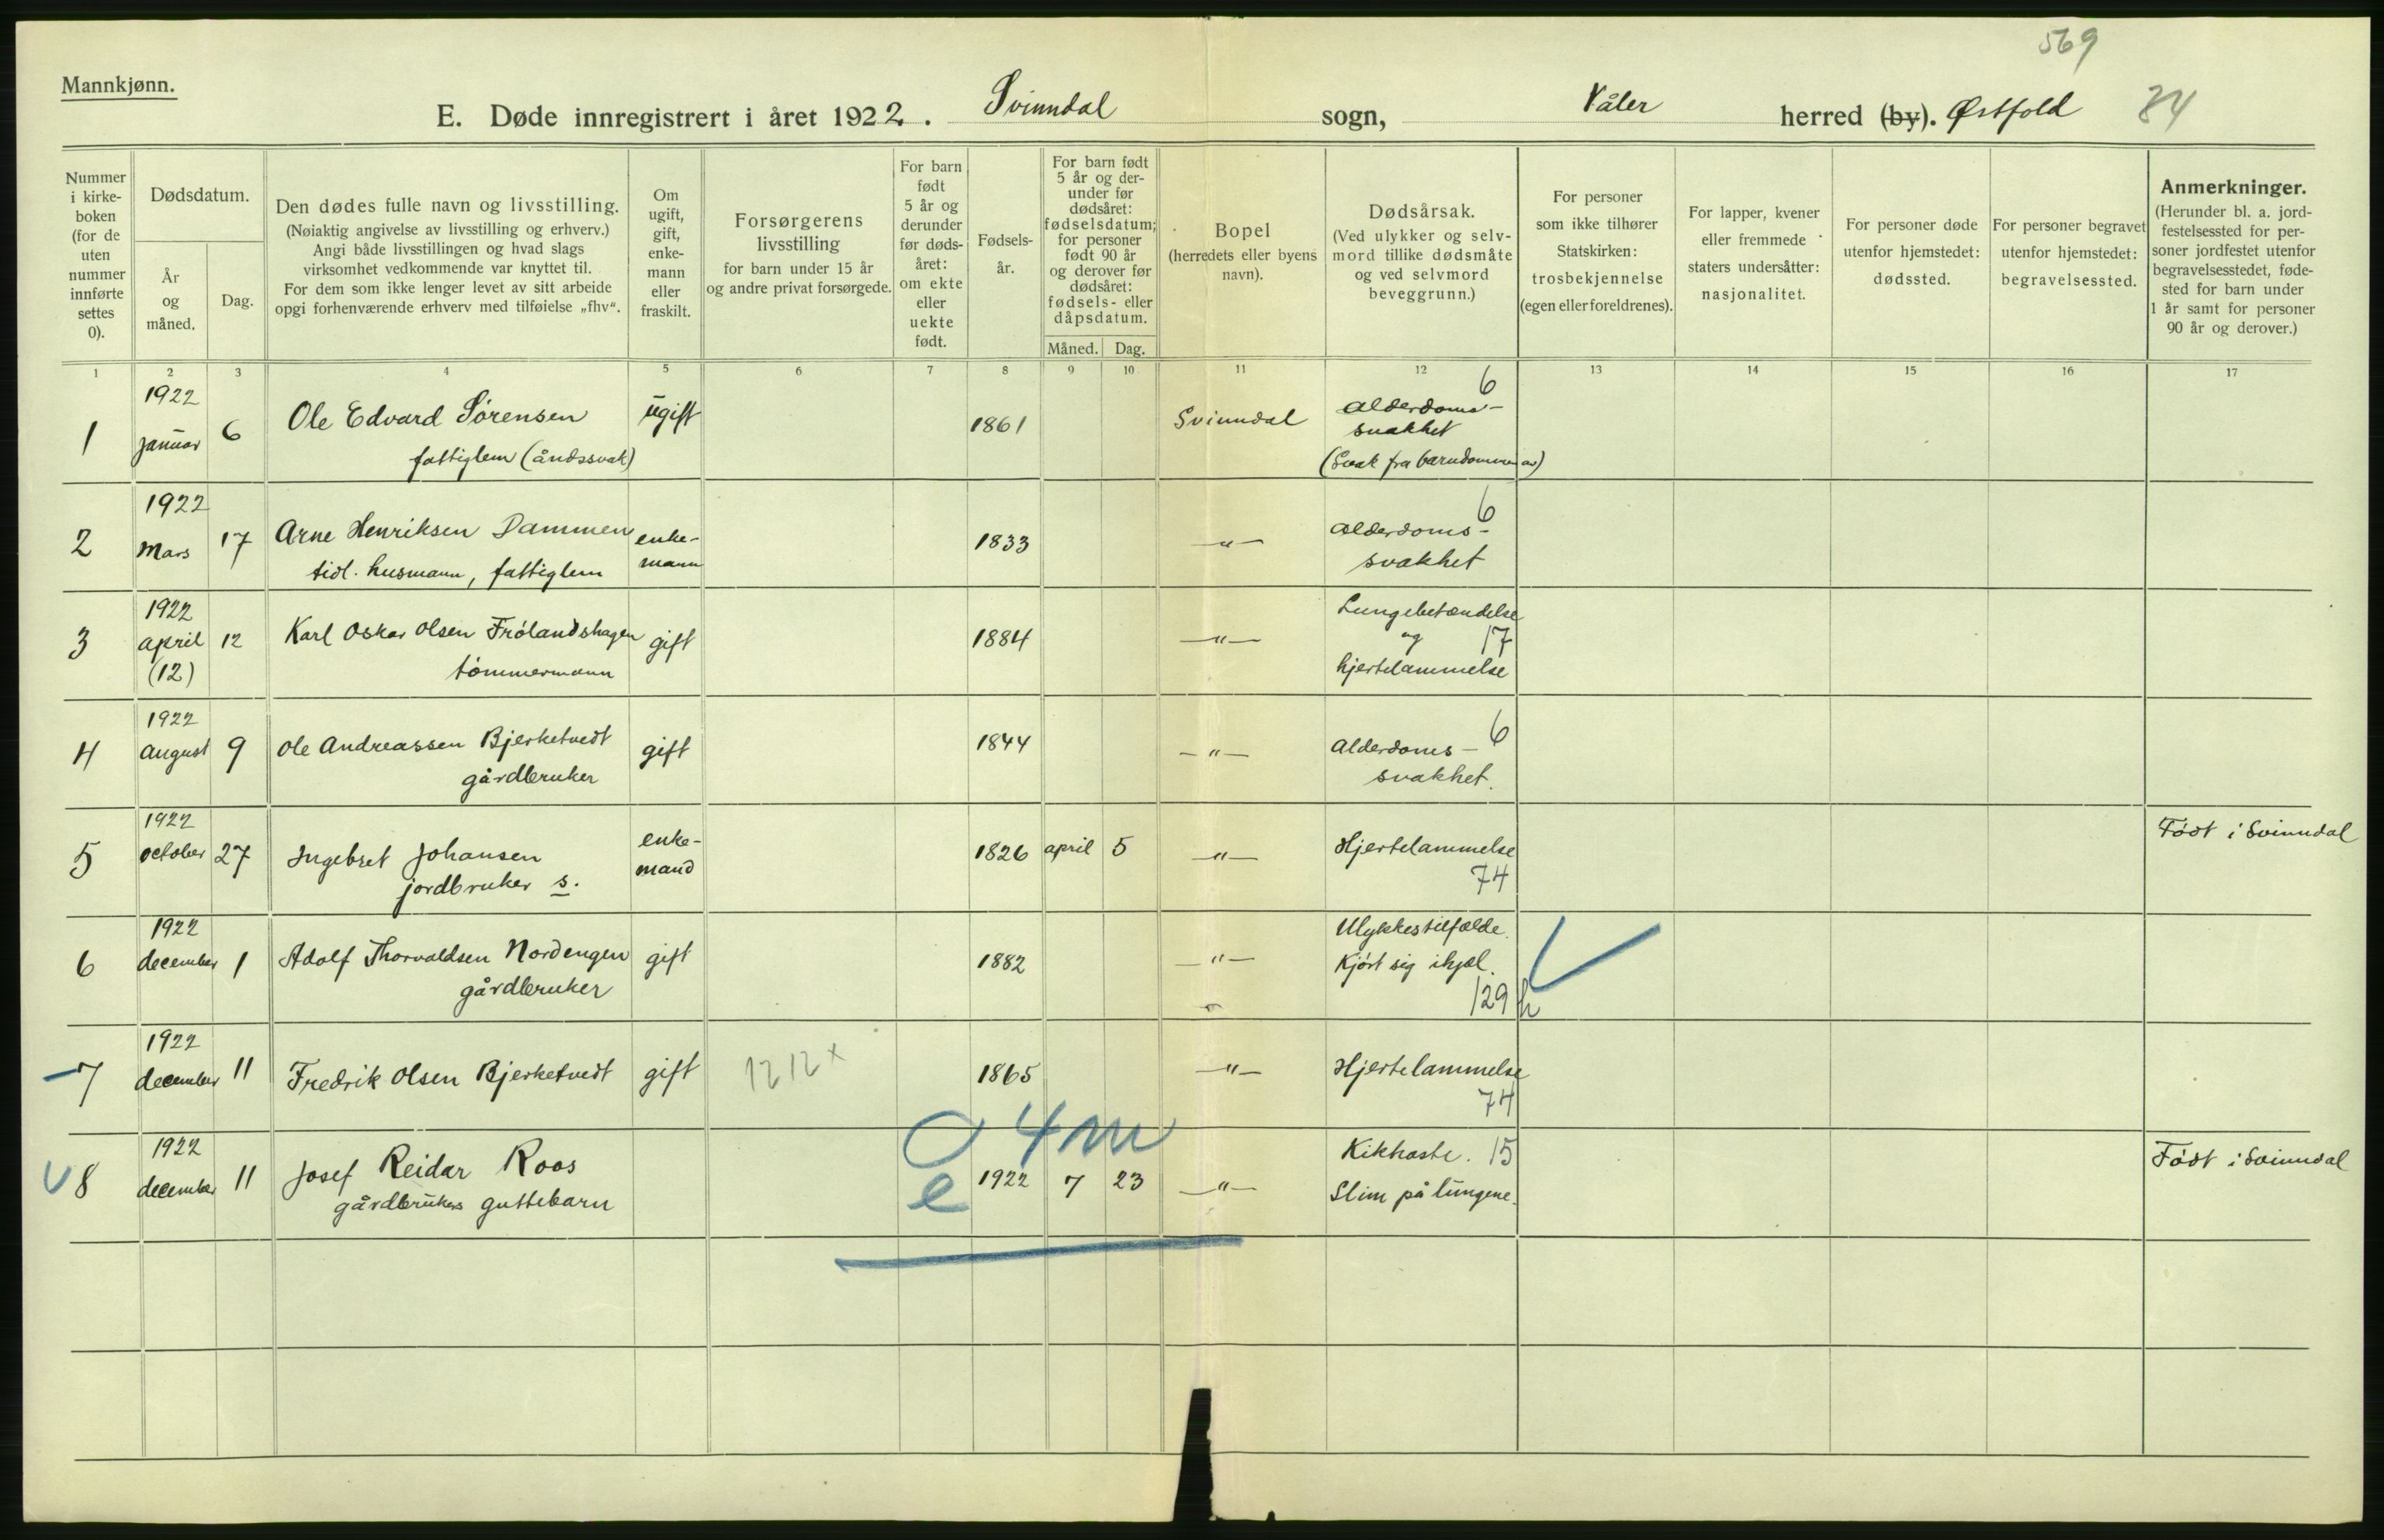 569
Mannkjønn.
E. Døde innregistrert i året 1922. Svinndal sogn, Våler herred (by). Østfold 84
Nummer i kirke- boken (for de uten nummer innførte settes 0).
Dødsdatum.
År og måned.
Dag.
Den dødes fulle navn og livsstilling.
(Nøiaktig angivelse av livsstilling og erhverv.)
Angi både livsstillingen og hvad slags
virksomhet vedkommende var knyttet til.
For dem som ikke lenger levet av sitt arbeide
opgi forhenværende erhverv med tilføielse „fhv“.
Om ugift, gift, enke- mann eller fraskilt.
Forsørgerens
livsstilling
for barn under 15 år
og andre privat forsørgede.
For barn født 5 år og derunder før døds- året: om ekte eller uekte født.
Fødsels- år.
For barn født 5 år og der- under før dødsåret: fødselsdatum; for personer født 90 år og derover før dødsåret: fødsels- eller dåpsdatum.
Måned. Dag.
Bopel
(herredets eller byens
navn).
Dødsårsak.
(Ved ulykker og selv-
mord tillike dødsmåte
og ved selvmord
beveggrunn.)
For personer
som ikke tilhører
Statskirken:
trosbekjennelse
(egen eller foreldrenes).
For lapper, kvener
eller fremmede
staters undersåtter:
nasjonalitet.
For personer døde
utenfor hjemstedet:
dødssted.
For personer begravet
utenfor hjemstedet:
begravelsessted.
Anmerkninger.
(Herunder bl. a. jord-
festelsessted for per-
soner jordfestet utenfor
begravelsesstedet, føde-
sted for barn under
1 år samt for personer
90 år og derover.)
1 2 3 4 5 6 7 8 9 10 11 12 13 14 15 16 17
1 1922 januar 6 Ole Edvard Sørensen ugift 1861 Svinndal Alderdoms- 6
fattiglem (åndssvak) svakhet
(Svak fra barndommen av)
2 1922 Mars 17 Arne Henriksen Dammen enke- 1833 —"— Alderdoms- 6
tidl. husmann, fattiglem mann svakhet
3 1922 april 12 Karl Oskar Olsen Frølandshagen gift 1884 —"— Lungebetændelse
(12) tømmermann og 17
hjertelammelse
4 1922 august 9 Ole Andreassen Bjerketvedt gift 1844 —"— Alderdoms- 6
gårdbruker svakhet.
5 1922 october 27 Ingebret Johansen enke- 1826 april 5 —"— Hjertelammelse Født i Svinndal
jordbruker s. mand 74
6 1922 december 1 Adolf Thorvaldsen Nordengen gift 1882 —"— Ulykkestilfælde.
gårdbruker Kjørt sig ihjæl.
129 h
7 1922 december 11 Fredrik Olsen Bjerketvedt gift 1212 x 1865 —"— Hjertelammelse
74
4 m
8 1922 december 11 Josef Reidar Roos e 1922 7 23 —"— Kikhoste. 15 Født i Svinndal
gårdbrukers guttebarn Slim på lungene.